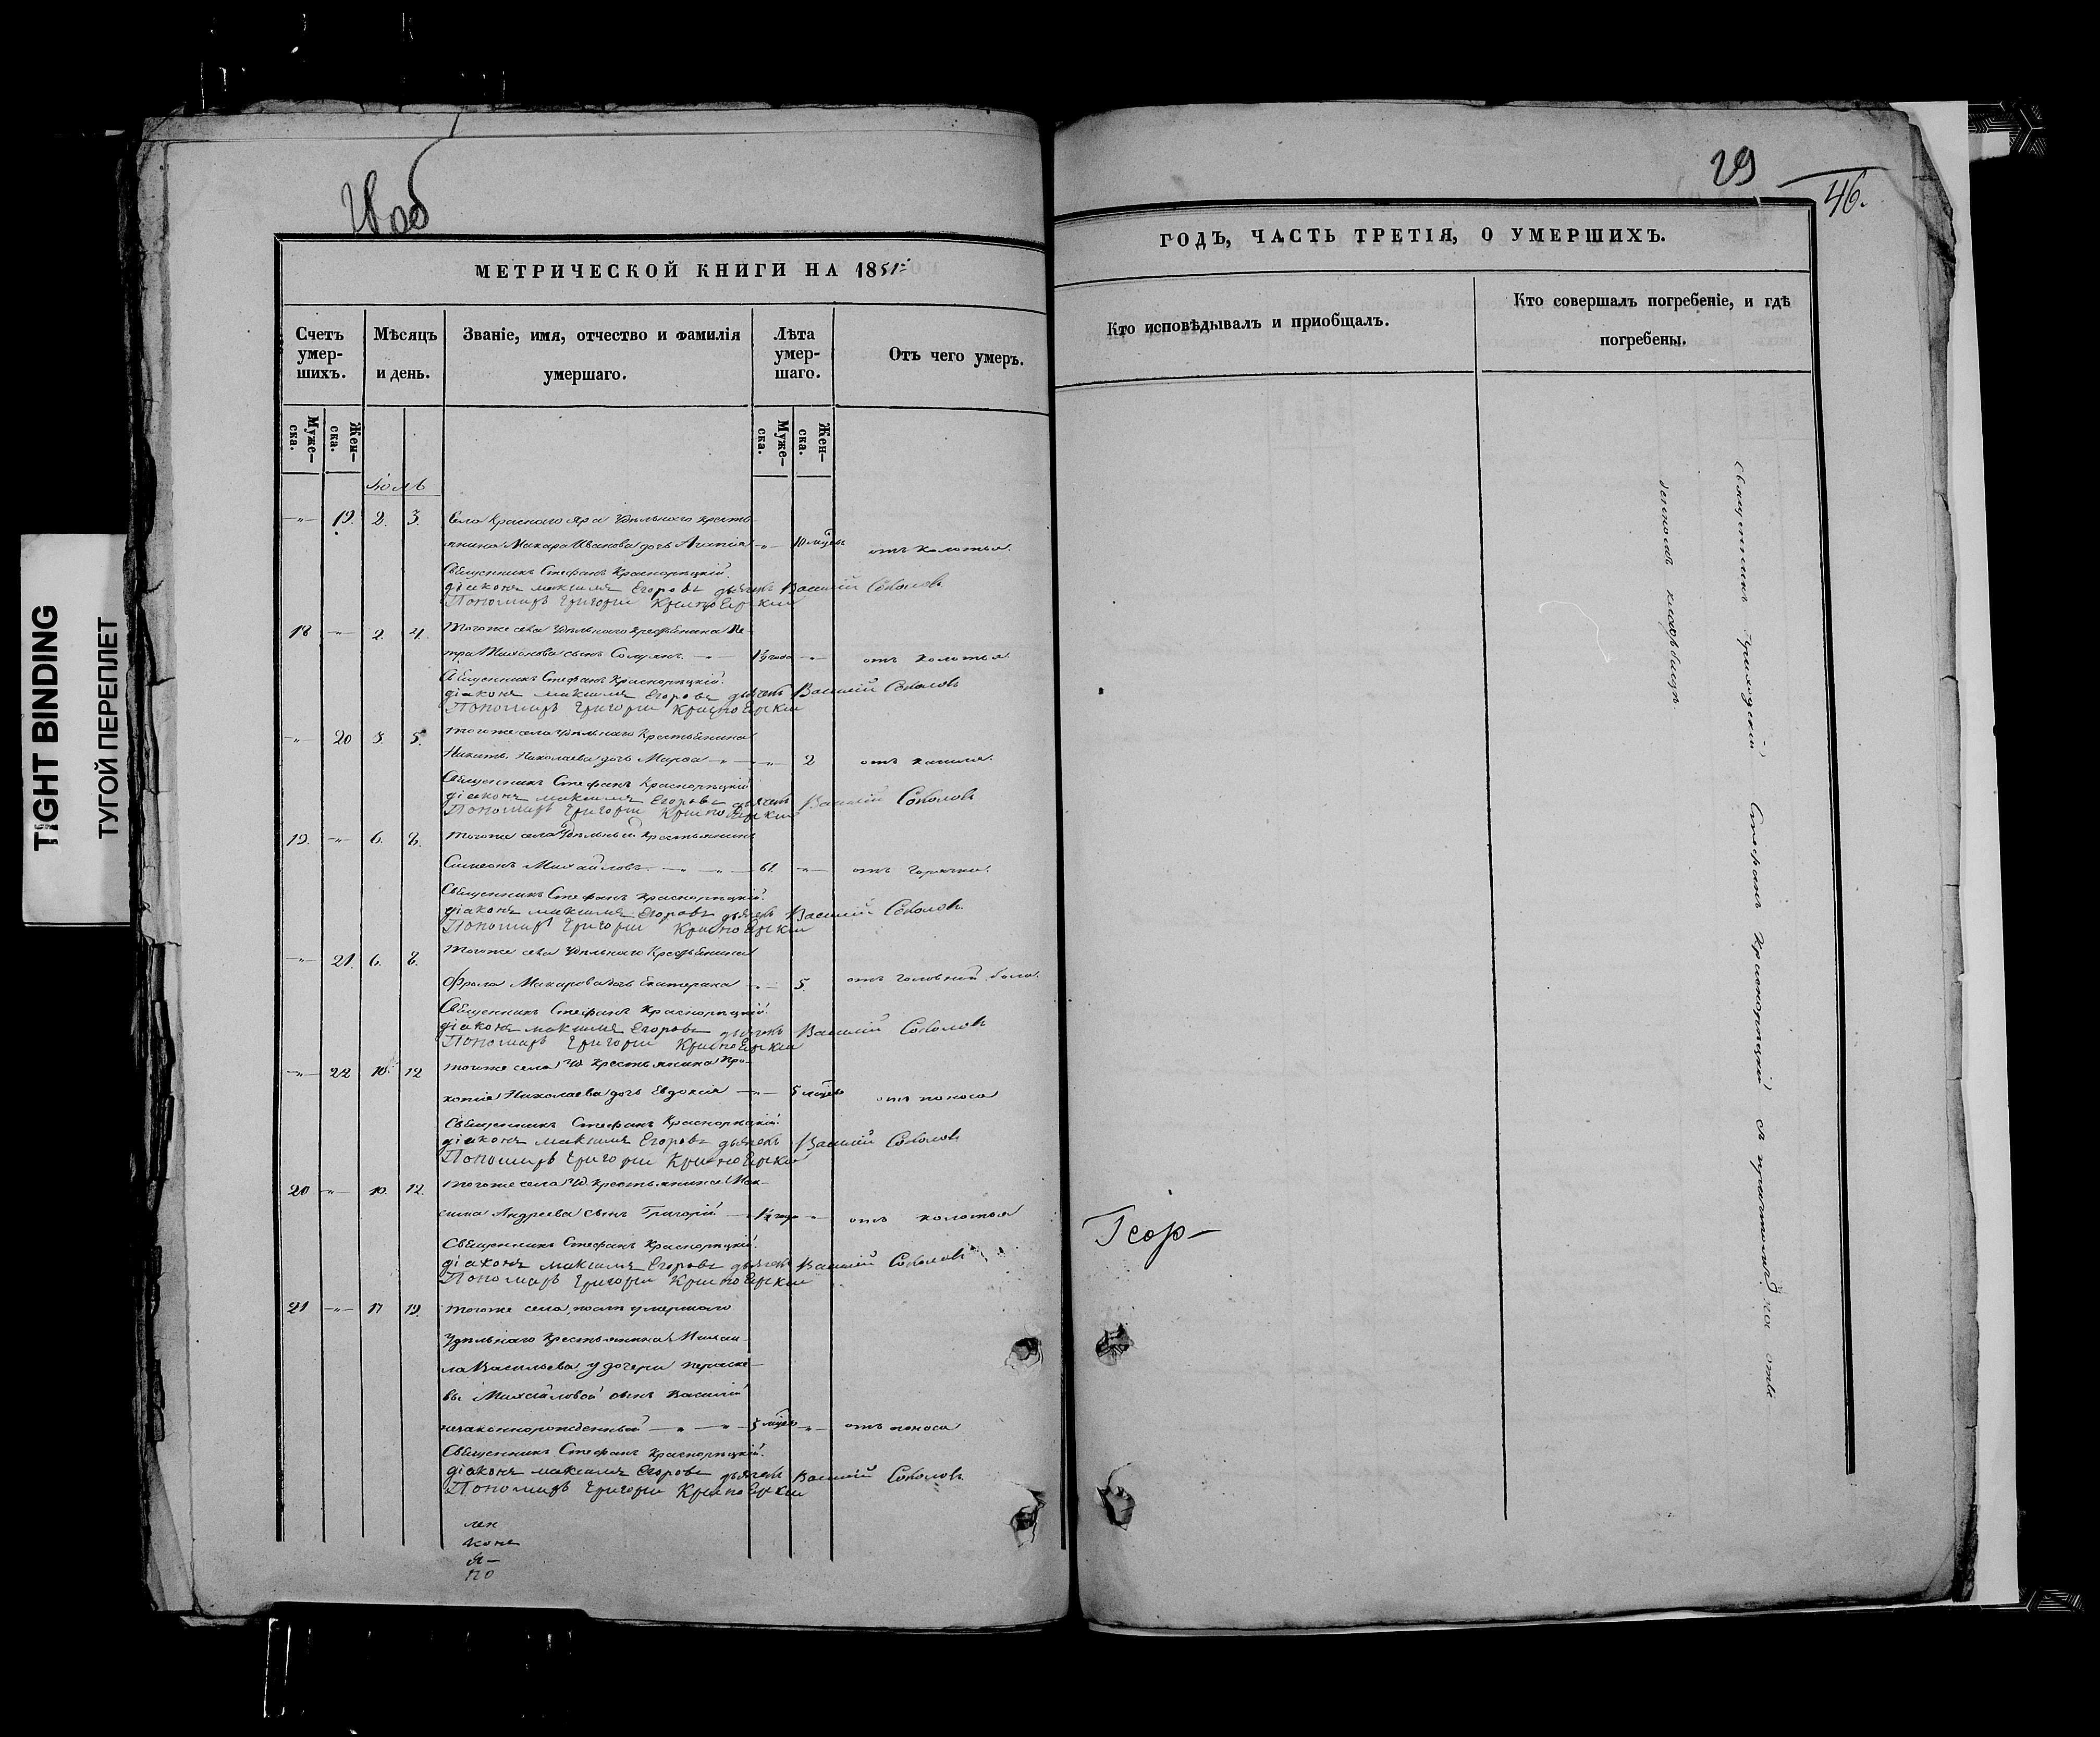 TIGHT BINDING
ТУГОЙ ПЕРЕПЛЕТ
28 об
МЕТРИЧЕСКОЙ КНИГИ НА 1851й
Счетъ умер-шихъ.
Мѣсяцъ и день.
Званіе, имя, отчество и фамилія умершаго.
Лѣта умер-шаго.
Отъ чего умеръ.
Муже-ска.
Жен-ска.
Муже-ска.
Жен-ска.
Іюль
19. 2. 3. Села Краснаго Яра Удѣльнаго кресть-
янина Макара Иванова дочь 10 отъ колотья.
Священникъ Стефанъ Краснорѣцкій.
діаконъ максимъ Егоровъ дьячекъ Василій Соколовъ
Пономарь Григорій
18 2. 4. тогоже села Удѣльнаго крестьянина Пе-
тра сынъ 1½ года отъ колотья
Священникъ Стефанъ Краснорѣцкій.
діаконъ максимъ Егоровъ дьячекъ Василій Соколовъ
Пономарь Григорій
20 3. 5. тогоже села Удѣльнаго Крестьянина
Никиты Николаева дочь Марѳа 2 отъ кашля.
Священникъ Стефанъ Краснорѣцкій
діаконъ максимъ Егоровъ дьячекъ Василій Соколовъ
Пономарь Григорій
19. 6. 8. тогоже села Удѣльный крестьянинъ
Симеонъ Михайловъ 61. отъ горячки.
Священникъ Стефанъ Краснорѣцкій.
діаконъ максимъ Егоровъ дьячекъ Василій Соколовъ
Пономарь Григорій
21. 6. 8. тогоже села Удѣльнаго Крестьянина
Фрола Макарова дочь Екатерина 5. отъ головной боли.
Священникъ Стефанъ Краснорѣцкій.
діаконъ максимъ Егоровъ дьячекъ Василій Соколовъ
Пономарь Григорій
22 10. 12 тогоже села Уд. Крестьянина Про-
копія Николаева дочь Евдокія 5 отъ поноса
Священникъ Стефанъ Краснорѣцкій.
діаконъ максимъ Егоровъ дьячекъ Василій Соколовъ
Пономарь Григорій
20 10. 12. тогоже села Уд. крестьянина Мак-
сима Андреева сынъ Григорій отъ колотья
Священникъ Стефанъ Краснорѣцкій.
діаконъ максимъ Егоровъ дьячекъ Василій Соколовъ
Пономарь Григорій
21 17 19. тогоже села, послѣ умершаго
Удѣльнаго крестьянина Михаи-
ла Васильева, у дочери Параске-
вы Михайловой сынъ Василій
незаконнорожденный 5 отъ поноса
Священникъ Стефанъ Краснорѣцкій.
діаконъ максимъ Егоровъ дьячекъ Василій Соколовъ
Пономарь Григорій
29
46.
ГОДЪ, ЧАСТЬ ТРЕТІЯ, О УМЕРШИХЪ.
Кто исповѣдывалъ и приобщалъ.
Кто совершалъ погребеніе, и гдѣ погребены.
Священникъ Приходскій Стефанъ Краснорѣцкій съ причтомъ на
кладбищѣ.